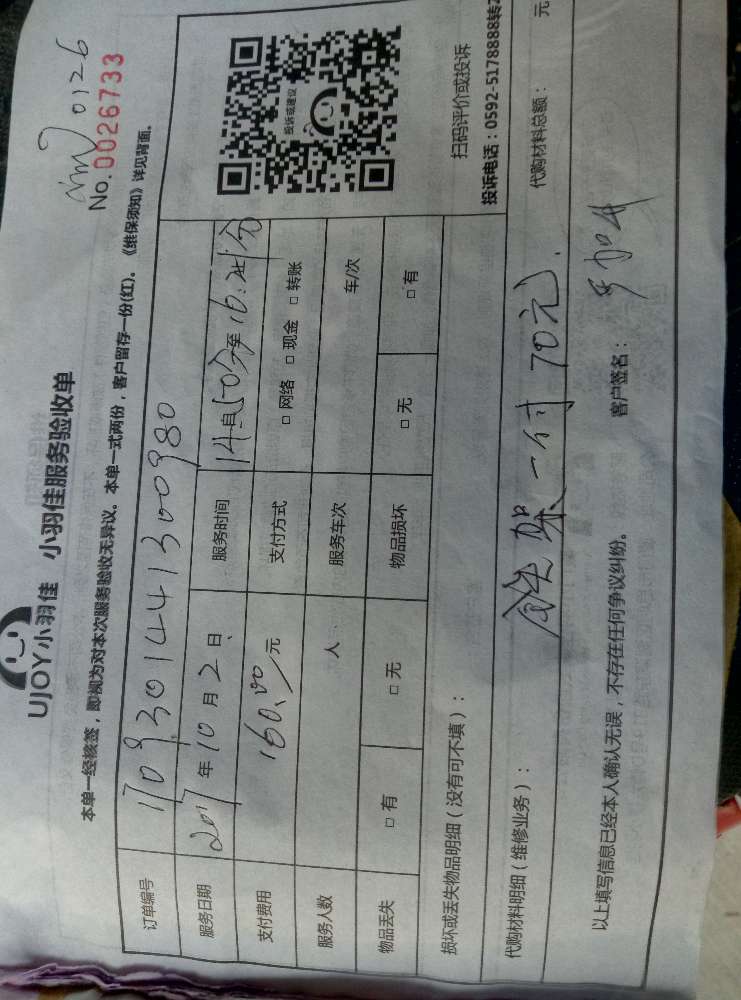 UJOY小羽佳 小羽佳服务验收单
0126
No.0026733
本单一经核签，即视为对本次服务验收无异议。本单一式两份，客户留存一份(红)。《维保须知》详见背面。
订单编号 170930144130098​0
服务日期 2017年10月2日 服务时间 14:50分至16:21分
支付费用 160.00元 支付方式 □网络 □现金 □转账
服务人数 人 服务车次 车/次
物品丢失 □有 □无 物品损坏 □无 □有
投诉或建议
扫码评价或投诉
投诉电话：0592-5178888转2
损坏或丢失物品明细（没有可不填）：
代购材料明细（维修业务）： 架一付70元. 代购材料总额： 元
以上填写信息已经本人确认无误，不存在任何争议纠纷。 客户签名：